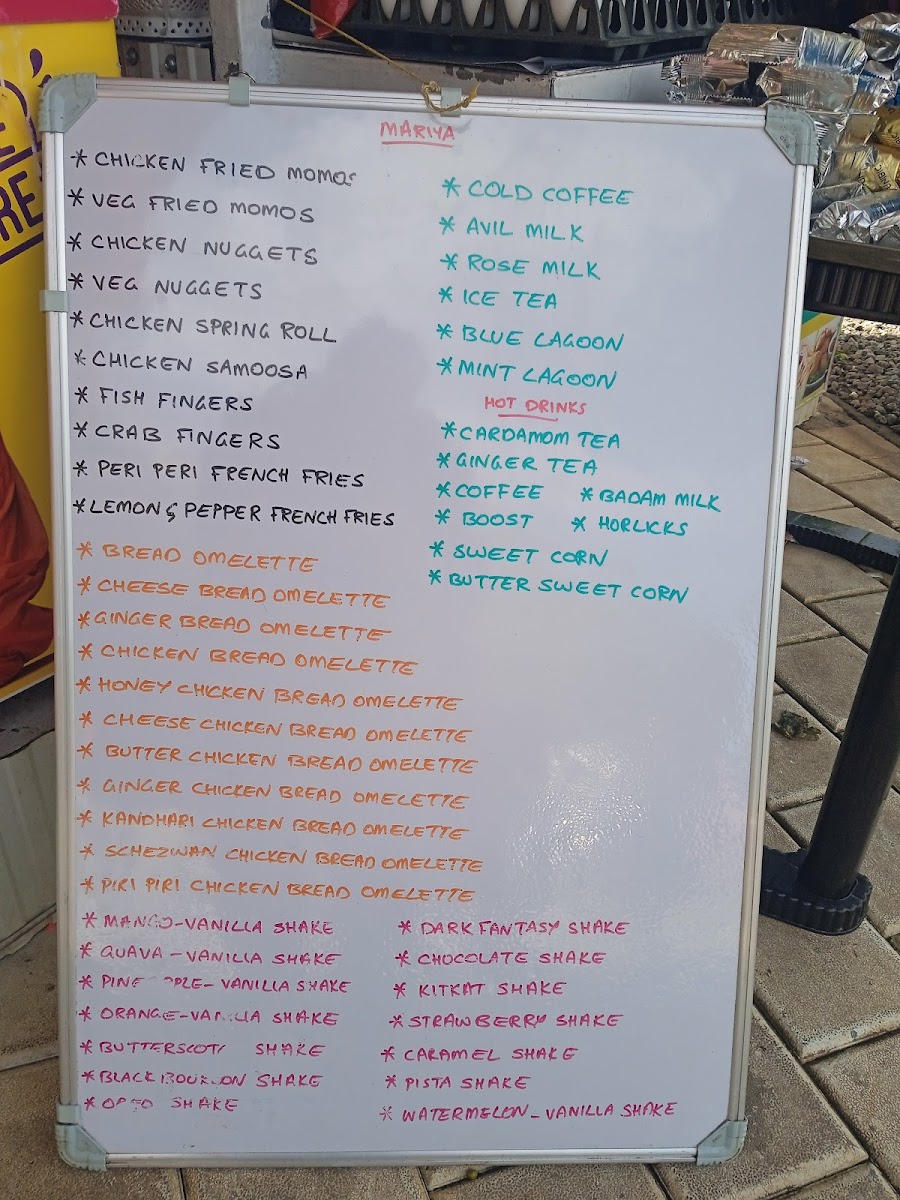 MARIYA
* CHICKEN FRIED MOMOS
* VEG FRIED MOMOS
* CHICKEN NUGGETS
* VEG NUGGETS
* CHICKEN SPRING ROLL
* CHICKEN SAMOOSA
* FISH FINGERS
* CRAB FINGERS
* PERI PERI FRENCH FRIES
* LEMON & PEPPER FRENCH FRIES
* COLD COFFEE
* AVIL MILK
* ROSE MILK
* ICE TEA
* BLUE LAGOON
* MINT LAGOON
HOT DRINKS
* CARDAMOM TEA
* GINGER TEA
* COFFEE * BADAM MILK
* BOOST * HORLICKS
* SWEET CORN
* BUTTER SWEET CORN
* BREAD OMELETTE
* CHEESE BREAD OMELETTE
* GINGER BREAD OMELETTE
* CHICKEN BREAD OMELETTE
* HONEY CHICKEN BREAD OMELETTE
* CHEESE CHICKEN BREAD OMELETTE
* BUTTER CHICKEN BREAD OMELETTE
* GINGER CHICKEN BREAD OMELETTE
* KANDHARI CHICKEN BREAD OMELETTE
* SCHEZWAN CHICKEN BREAD OMELETTE
* PIRI PIRI CHICKEN BREAD OMELETTE
* MANGO-VANILLA SHAKE
* GUAVA - VANILLA SHAKE
* PINE PPLE - VANILLA SHAKE
* ORANGE-VANILLA SHAKE
* BUTTERSCOT SHAKE
* BLACK BOURBON SHAKE
* OREO SHAKE
* DARK FANTASY SHAKE
* CHOCOLATE SHAKE
* KITKAT SHAKE
* STRAWBERRY SHAKE
* CARAMEL SHAKE
* PISTA SHAKE
* WATERMELON - VANILLA SHAKE